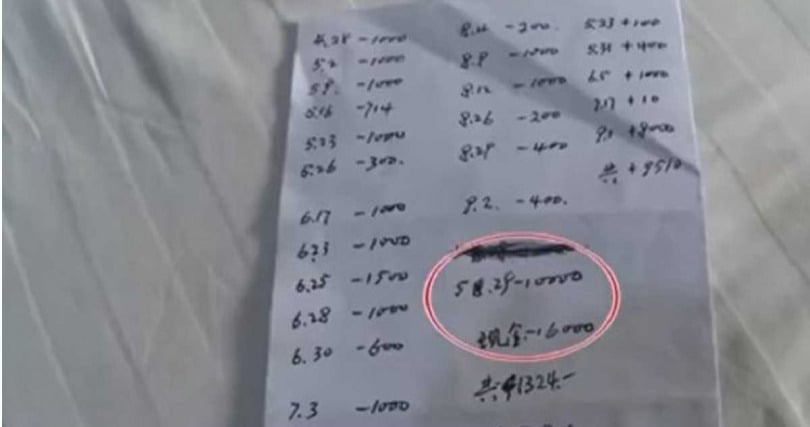 4.28 -1000
5.2 -1000
5.9. -1000
5.16 -714
5.23 -1000
5.26 -300.
6.17 -1000
6.23 -1000
6.25 -1500
6.28 -1000
6.30 -600
7.3 -1000
-200.
8.8 -1000
8.12 -1000
8.26 -200
8.29 -400
9.2. -400.
.29-10000
现金-16000
共:41324.-
5.23 +100
5.31 +400
6.5 +1000
7.17 +10
9.1 +8000
共: +9510